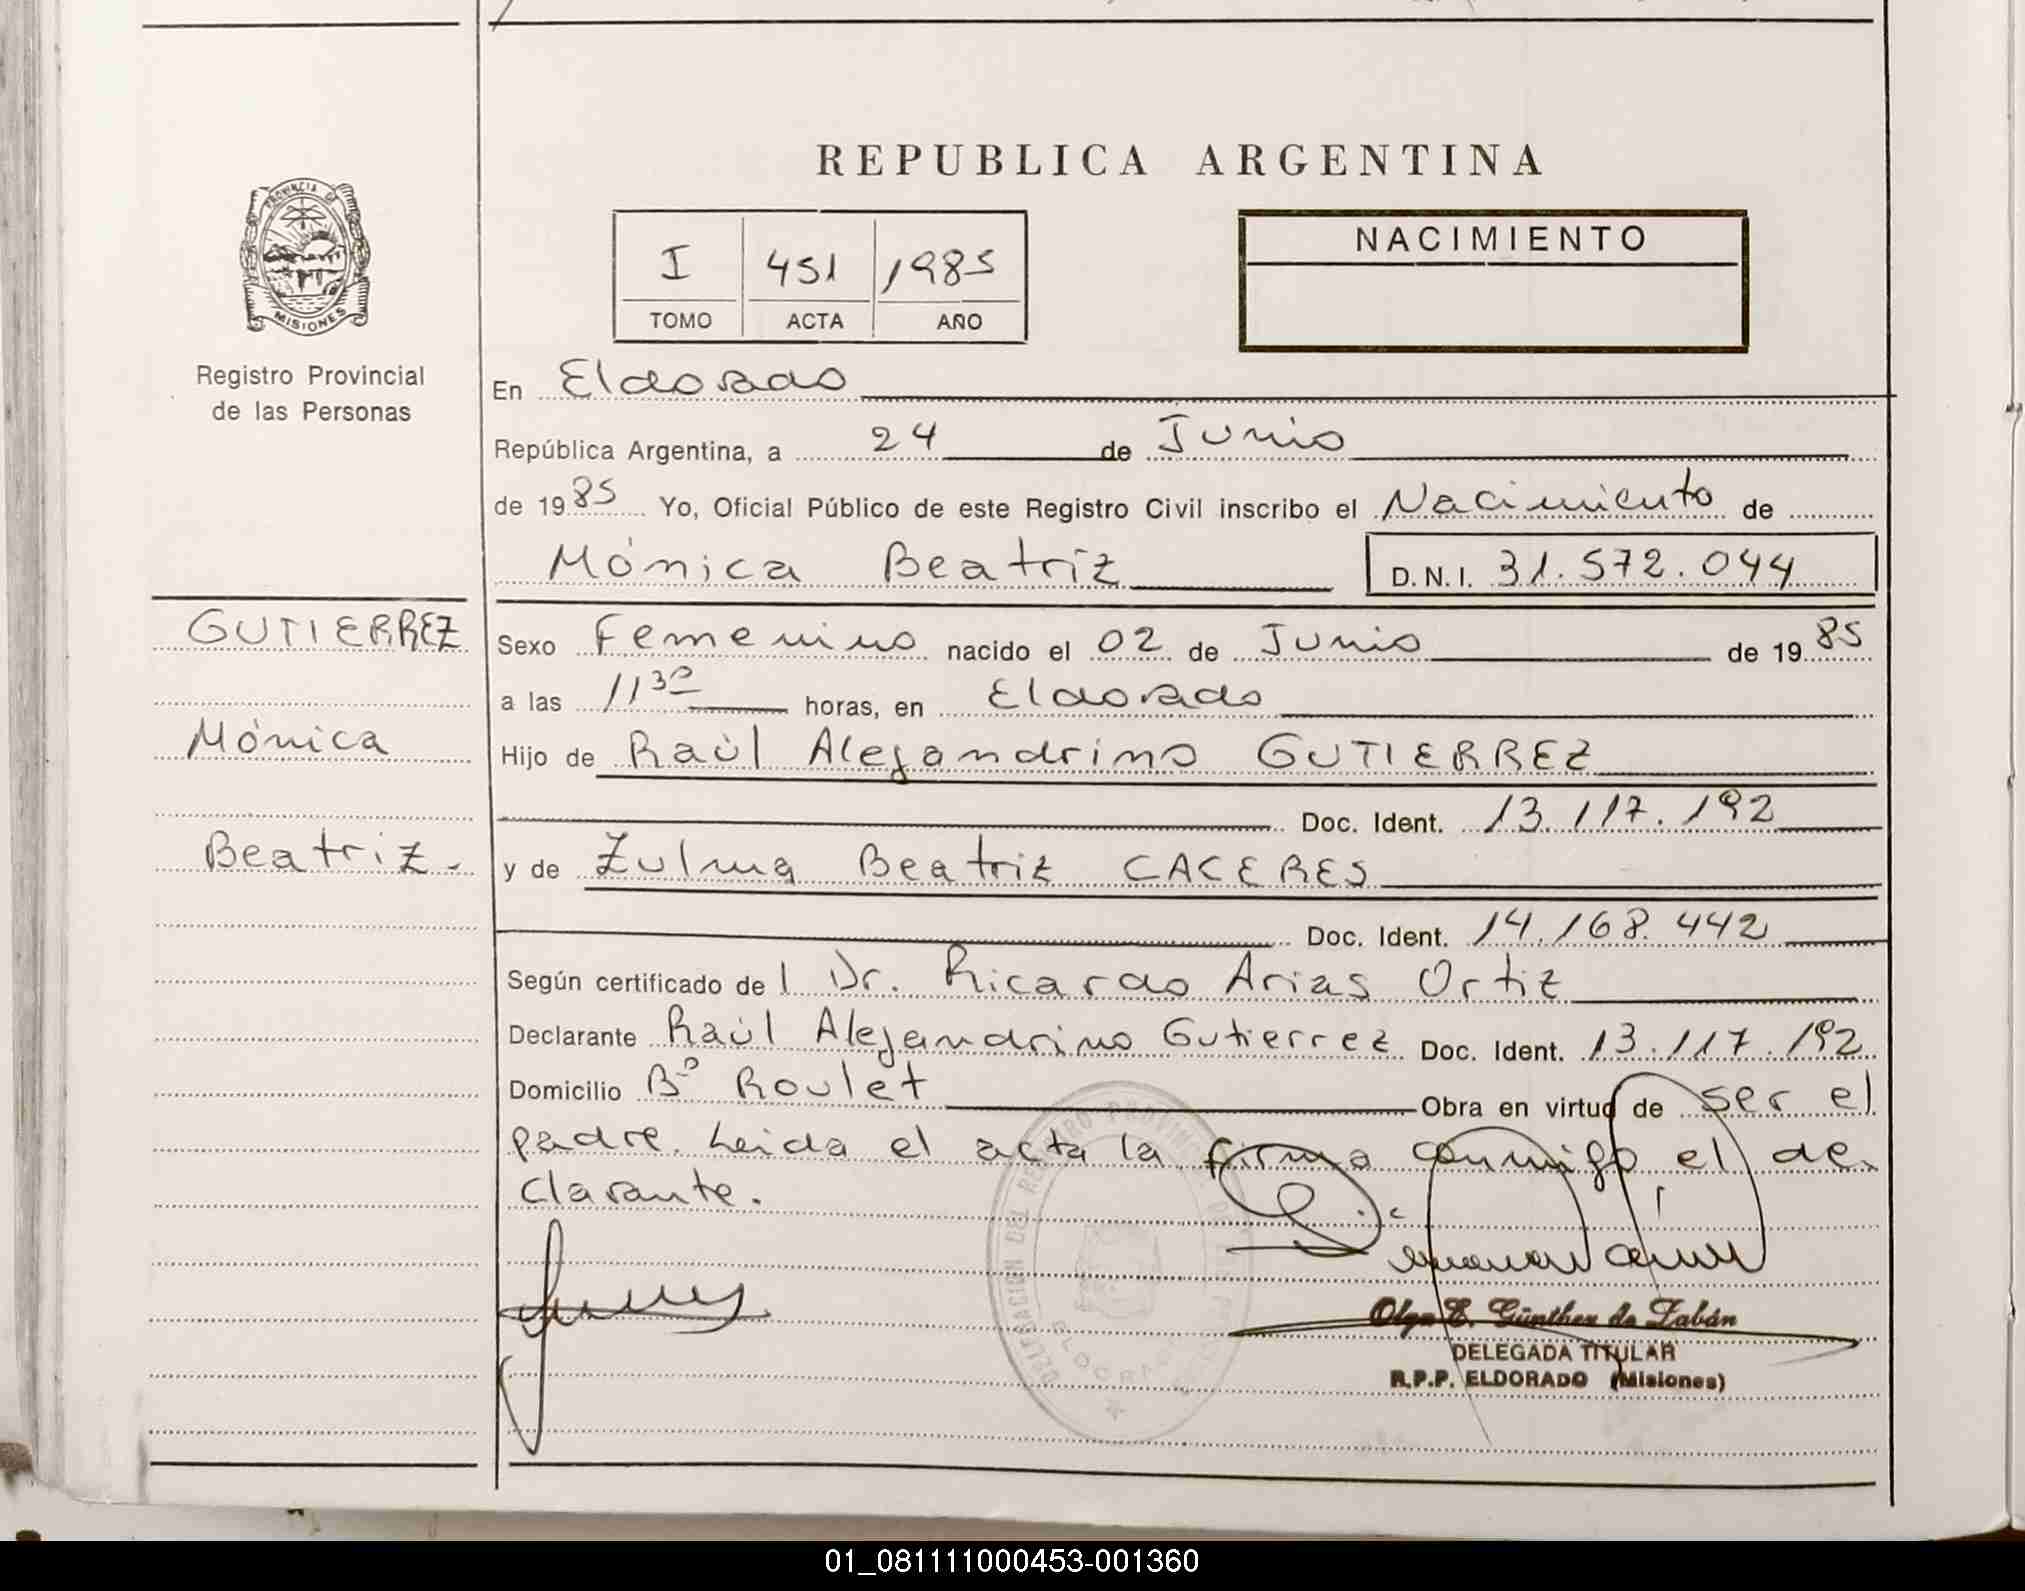 REPUBLICA ARGENTINA
PROVINCIA DE
MISIONES
Registro Provincial
de las Personas
I 451 1985
TOMO ACTA AÑO
NACIMIENTO
En Eldorado
República Argentina, a 24 de Junio
de 1985 Yo, Oficial Público de este Registro Civil inscribo el Nacimiento de
Mónica Beatriz D.N.I. 31.572.044
GUTIERREZ
Mónica
Beatriz.
Sexo Femenino nacido el 02 de Junio de 1985
a las 11 30 horas, en Eldorado
Hijo de Raúl Alejandrino GUTIERREZ
Doc. Ident. 13.117.192
y de Zulma Beatriz CACERES
Doc. Ident. 14.168.442
Según certificado del Dr. Ricardo Arias Ortiz
Declarante Raúl Alejandrino Gutierrez Doc. Ident. 13.117.192
Domicilio Bº Roulet Obra en virtud de ser el
padre. Leida el acta la firma conmigo el de-
clarante.
DELEGACION DEL REGISTRO PROVINCIAL DE LAS PERSONAS
ELDORADO
Olga E. Günther de Zabán
DELEGADA TITULAR
R.P.P. ELDORADO (Misiones)
01_081111000453-001360